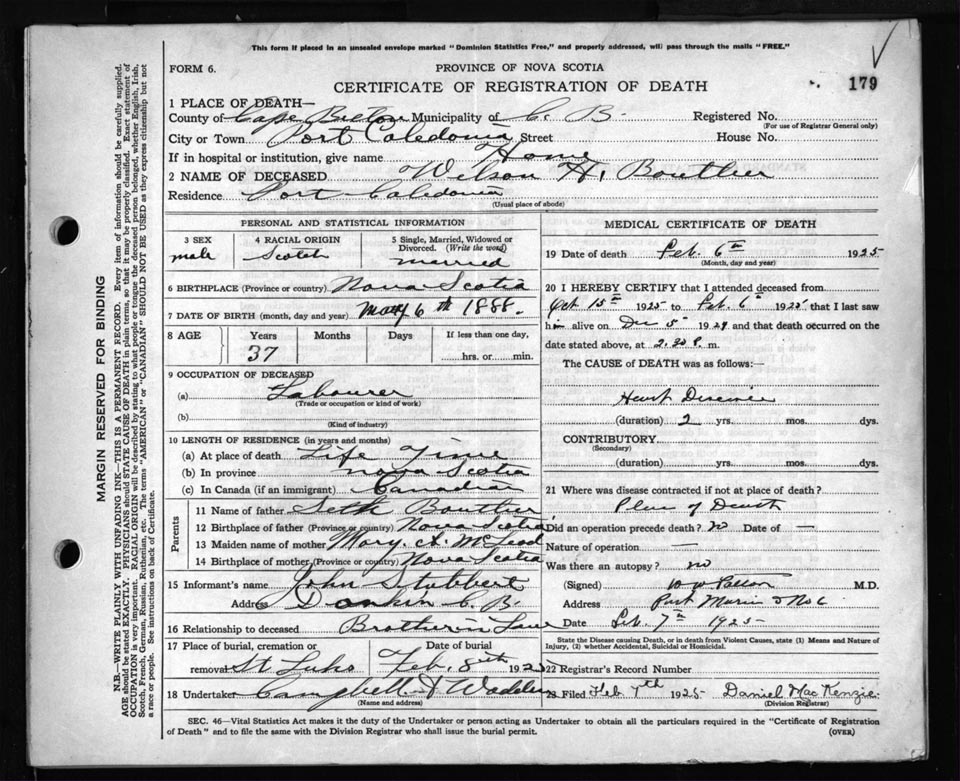 This form if placed in an unsealed envelope marked "Dominion Statistics Free," and properly addressed, will pass through the mails "FREE."
FORM 6.
PROVINCE OF NOVA SCOTIA
179
CERTIFICATE OF REGISTRATION OF DEATH
1 PLACE OF DEATH—
County of Cape Breton Municipality of C. B. Registered No.
(For use of Registrar General only)
City or Town Port Caledonia Street House No.
If in hospital or institution, give name Home
2 NAME OF DECEASED Wilson H. Bouthier
Residence Port Caledonia
(Usual place of abode)
PERSONAL AND STATISTICAL INFORMATION
3 SEX
male
4 RACIAL ORIGIN
Scotch
5 Single, Married, Widowed or Divorced. (Write the word)
married
6 BIRTHPLACE (Province or country) Nova Scotia
7 DATE OF BIRTH (month, day and year) May 6th 1888.
8 AGE Years Months Days If less than one day,
37 hrs. or min.
9 OCCUPATION OF DECEASED
(a) Labourer
(Trade or occupation or kind of work)
(b)
(Kind of industry)
10 LENGTH OF RESIDENCE (in years and months)
(a) At place of death Life Time
(b) In province Nova Scotia
(c) In Canada (if an immigrant) Canadian
Parents
11 Name of father Seth Bouthier
12 Birthplace of father (Province or country) Nova Scotia
13 Maiden name of mother Mary. A. McLeod
14 Birthplace of mother (Province or country) Nova Scotia
15 Informant's name John Stubbert
Address Donkin C. B.
16 Relationship to deceased Brother in Law
17 Place of burial, cremation or Date of burial
removal St Luks Feb. 8th 1925
18 Undertaker Campbell & Wadden
(Name and address)
MEDICAL CERTIFICATE OF DEATH
19 Date of death Feb. 6th 1925
(Month, day and year)
20 I HEREBY CERTIFY that I attended deceased from
Oct 15th 1925 to Feb. 6th 1925 that I last saw
him alive on Dec 5th 1924 and that death occurred on the
date stated above, at 2.30 P. m.
The CAUSE OF DEATH was as follows:—
Heart Disease
(duration) 2 yrs. mos. dys.
CONTRIBUTORY
(Secondary)
(duration) yrs. mos. dys.
21 Where was disease contracted if not at place of death?
Place of Death
Did an operation precede death? no Date of —
Nature of operation —
Was there an autopsy? no
(Signed) M.D.
Address Port Morien
Date Feb. 7th 1925
State the Disease causing Death, or in death from Violent Causes, state (1) Means and Nature of
Injury, (2) whether Accidental, Suicidal or Homicidal.
22 Registrar's Record Number
23 Filed Feb 7th 1925 Daniel MacKenzie
(Division Registrar)
SEC. 46—Vital Statistics Act makes it the duty of the Undertaker or person acting as Undertaker to obtain all the particulars required in the "Certificate of Registration
of Death" and to file the same with the Division Registrar who shall issue the burial permit.
(OVER)
MARGIN RESERVED FOR BINDING
N.B.—WRITE PLAINLY WITH UNFADING INK—THIS IS A PERMANENT RECORD. Every item of information should be carefully supplied.
AGE should be stated EXACTLY. PHYSICIANS should STATE CAUSE OF DEATH in plain terms, so that it may be properly classified. Exact statement of
OCCUPATION is very important. RACIAL ORIGIN will be described by stating to what people or tongue the deceased person belonged, whether English, Irish,
Scotch, French, German, Russian, Ruthenian, etc. The terms "AMERICAN" or "CANADIAN" SHOULD NOT BE USED as they express citizenship but not
a race or people. See instructions on back of Certificate.